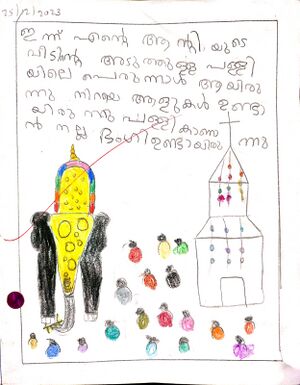 25/12/2023
ഇന്ന് എന്റെ ആന്റിയുടെ
വീടിന്റെ അടുത്തുള്ള പള്ളി
യിലെ പെരുന്നാൾ ആയിരു
ന്നു നിറയെ ആളുകൾ ഉണ്ടാ
യിരുന്നു പള്ളി കാണാ
ൻ നല്ല ഭംഗി ഉണ്ടായിരുന്നു